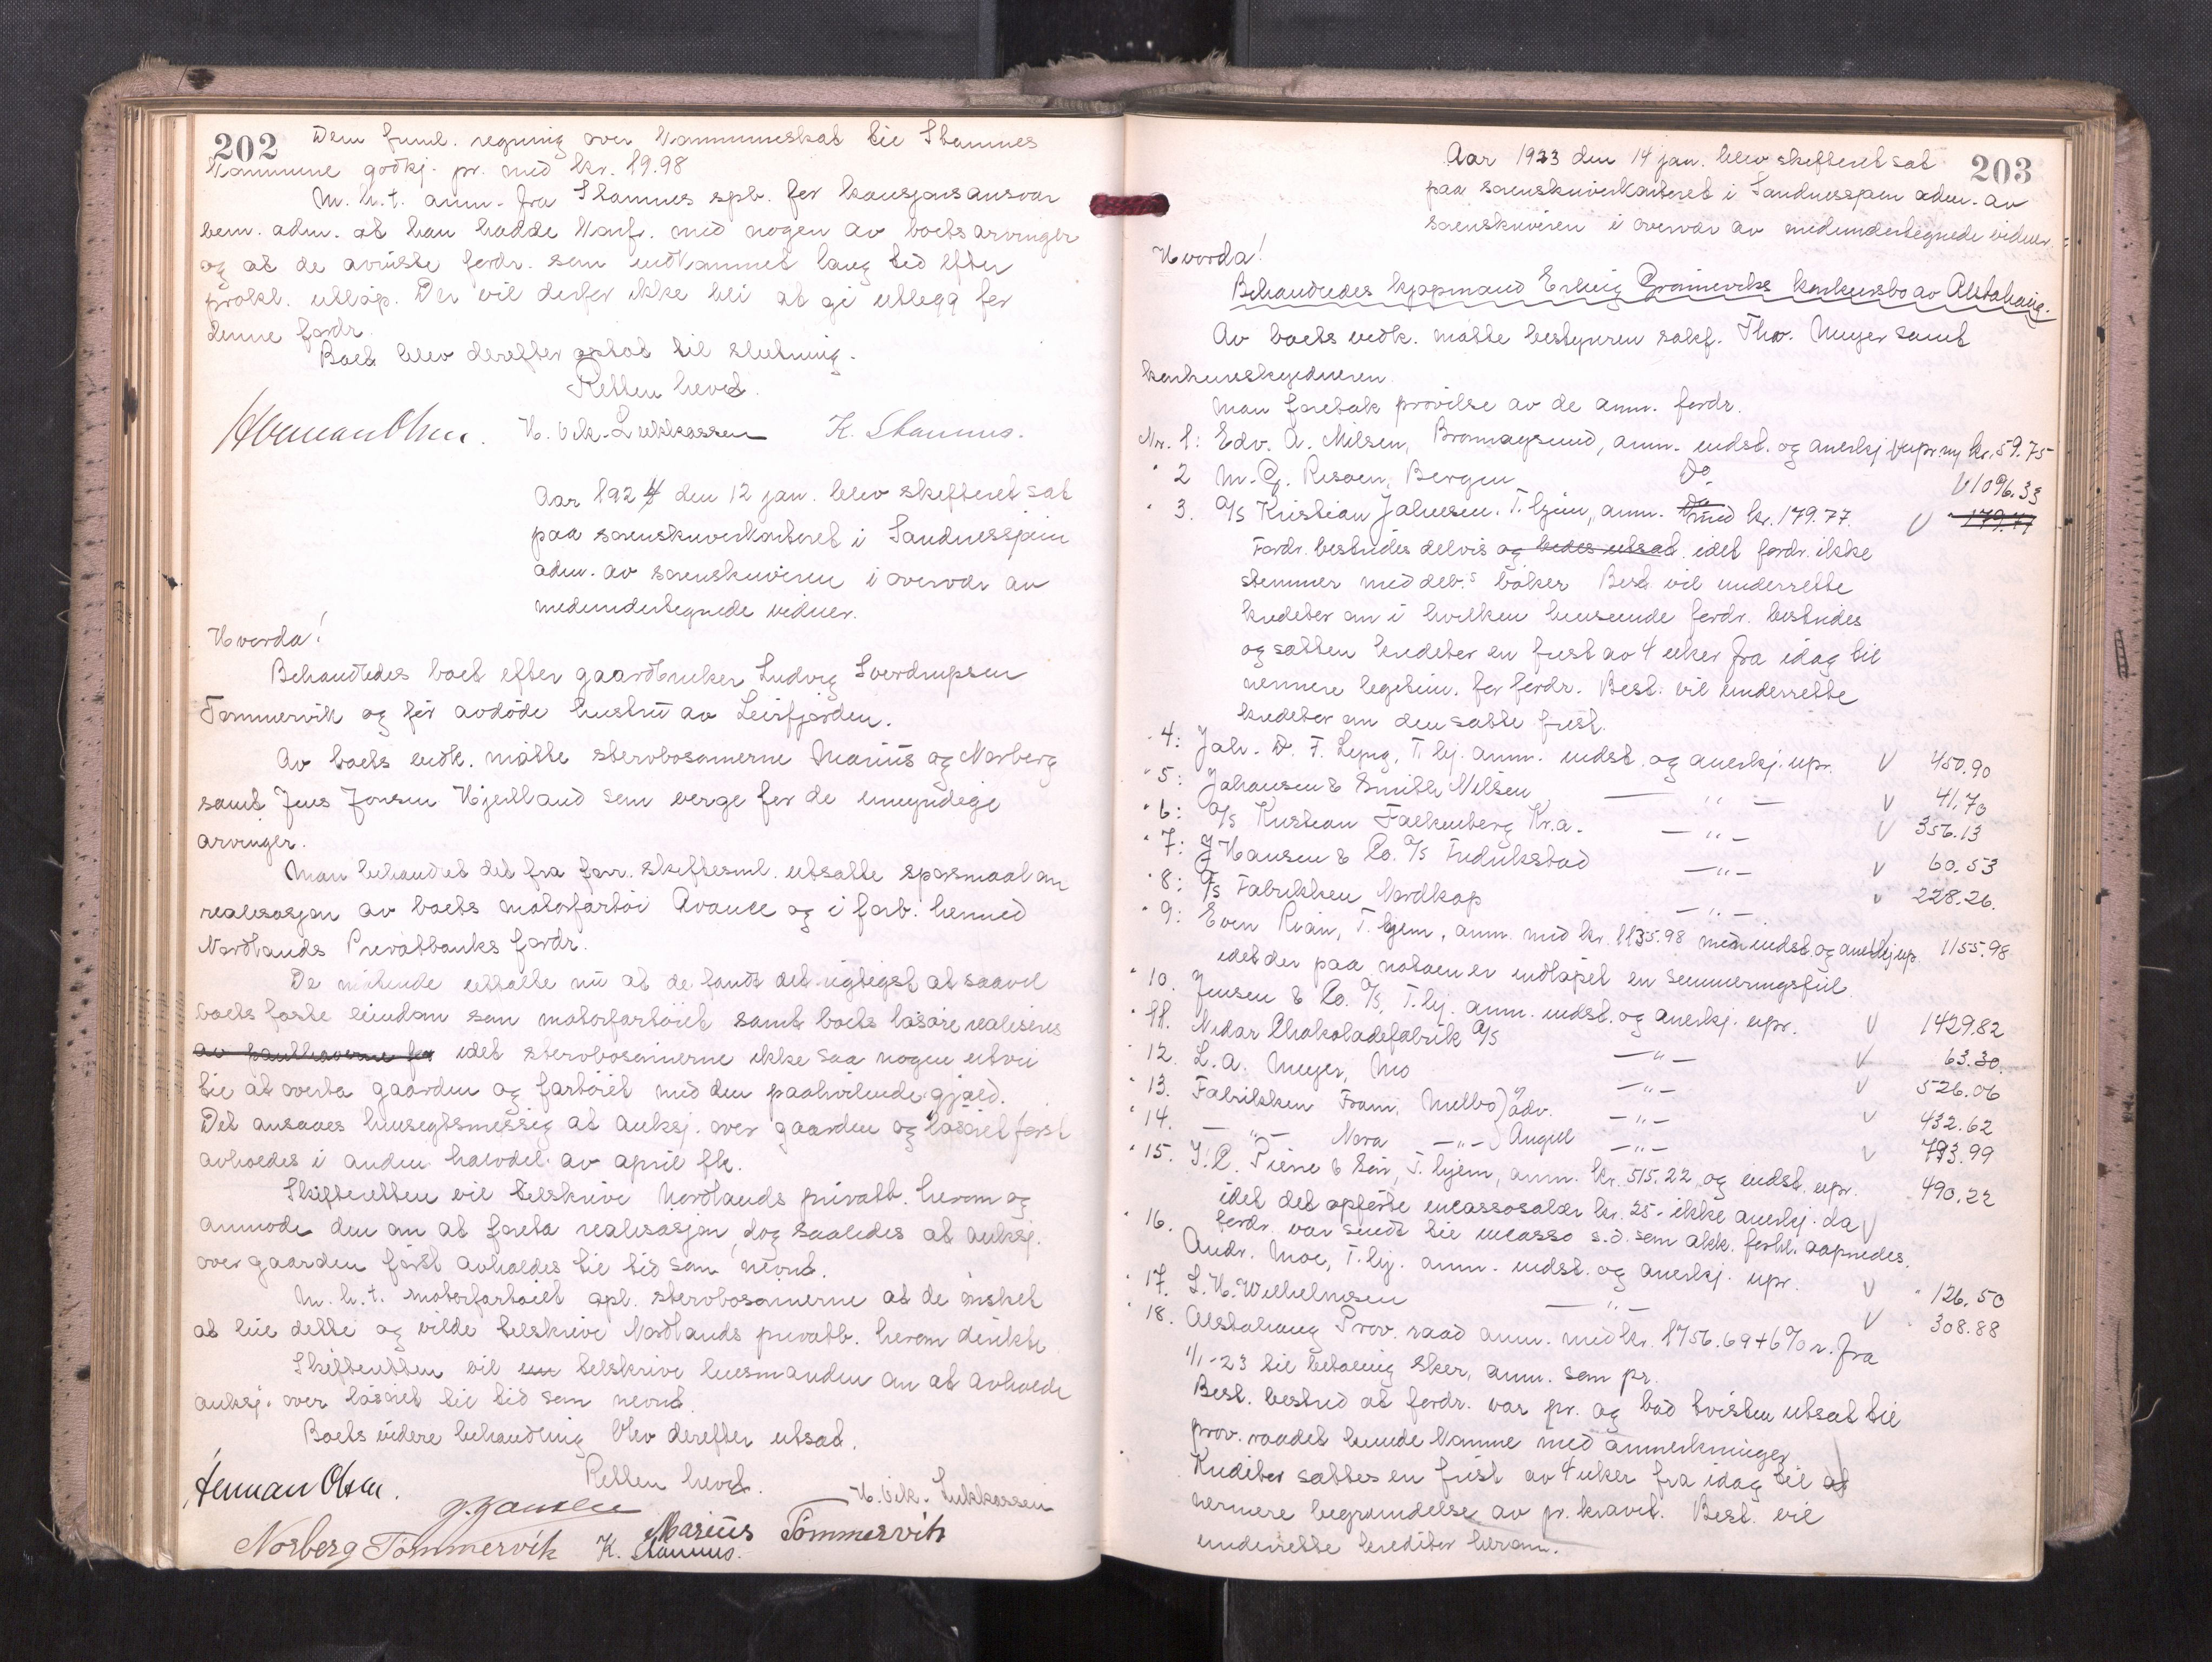 202
Den fuml. regning over Kommuneskat til Stamnes
Kommune godkj. pr. med kr. 19.98
M.h.t. anm. fra Stamnes spb. for kausjonsansvar
bem. adm. at han hadde konf. med nogen av boets arvinger
og at de aviste fordr. som indkommet lang tid efter
prokl. utløp. Der vil derfor ikke bli at gi utlegg for
denne fordr.
Boet blev derefter optat til slutning.
Retten hevet.
Herman Olsen. H. Vik-Lukkassen K. Stamnes.
Aar 1924 den 12 jan. blev skifteret sat
paa sorenskriverkontoret i Sandnessjøen
adm. av sorenskriveren i overvær av
medundertegnede vidner.
Hvorda!
Behandledes boet efter gaardbruker Ludvig Sverdrupsen
Tømmervik og før avdøde hustru av Leirfjorden.
Av boets vedk. møtte stervbosønnerne Marius og Norberg
samt Jens Jonsen Hjelland som verge for de umyndige
arvinger.
Man behandlet det fra forr. skiftesml. utsatte spørsmaal om
realisasjon av boets motorfartøi Avance og i forb. hermed
Nordlands Privatbanks fordr.
De møtende uttalte nu at de fandt det rigtigst at saavel
boets faste eiendom som motorfartøiet samt boets løsøre realiseres
av panthaverne for idet stervbosønnerne ikke saa nogen utvei
til at overta gaarden og fartøiet med den paahvilende gjæld.
Det ansaaes hensigtsmessig at auksj. over gaarden og løsøret først
avholdes i anden halvdel av april ffk.
Skifteretten vil tilskrive Nordlands privatb. herom og
anmode den om at foreta realisasjon, dog saaledes at auksj.
over gaarden først avholdes til tid som nevnt.
M.h.t. motorfartøiet opl. stervbosønnerne at de ønsket
at leie dette og vilde tilskrive Nordlands privatb. herom direkte.
Skifteretten vil tilskrive lensmanden om at avholde
auksj. over løsøret til tid som nevnt.
Boets videre behandling blev derefter utsat.
Retten hevet.
Herman Olsen. J. Jonsen H. Vik-Lukkassen
Norberg Tømmervik K. Stamnes. Marius Tømmervik
203
Aar 1923 den 14 jan. blev skifteret sat
paa sorenskriverkontoret i Sandnessjøen adm. av
sorenskriveren i overvær av medundertegnede vidner.
Hvorda!
Behandledes kjøpmand Erling Grønviks konkursbo av Alstahaug.
Av boets vedk. møtte bestyreren sakf. Thv. Meyer samt
konkursskyldneren.
Man foretok prøvelse av de anm. fordr.
Nr. 1: Edv. A. Nilsen, Brønnøysund, anm. indst. og anerkj. upr. kr. 59.75
" 2 M.G. Resoen, Bergen Do V 1096.33
" 3. A/S Kristian Johnsen. T.hjem, anm. Do med kr. 179.77. V 179.77
Fordr. bestrides delvis og bedes utsat. idet fordr. ikke
stemmer med deb.s bøker Best. vil underrette
kreditor om i hvilken henseende fordr. bestrides
og sattes kreditor en frist av 4 uker fra idag til
nermere legitim. for fordr. Best. vil underrette
kreditor om den satte frist.
" 4: Joh. D. F. Lyng, T.hj. anm. indst. og anerkj. upr. V 450.90
" 5: Johansen & Smith Nilsen — " — V 41.70
" 6: A/S Kristian Falkenberg Kr.a. — " — V 356.13
" 7: J Hansen & Co. A/S Fredrikstad — " — V 60.53
" 8: A/S Fabrikken Nordkap — " — V 228.26.
" 9: Even Rian, T.hjem, anm. med kr. 1135.98 men indst. og anerkj. upr. 1155.98
idet der paa notaen er indløpet en summeringsfeil.
" 10. Jensen & Co. A/S, T.hj. anm. indst. og anerkj. upr. V 1429.82
" 11. Nidar Chokoladefabrik A/S — " — V 63.30.
" 12. L.A. Meyer, Mo — " — V 526.06
" 13. Fabrikken Fram, Melbo) v/ adv. — " — V 432.62
" 14. — " — Nora — " — ) Angell — " — V 793.99
" 15. I.C. Piene & Søn, T.hjem, anm. kr. 515.22 og indst. upr. 490.22
idet det opførte incassosalær kr. 25.- ikke anerkj. da V
fordr. var sendt til incasso s.d. som akk. forhl. aapnedes.
" 16. Andr. Moe, T.hj. anm. indst. og anerkj. upr. V " 126.50
" 17. L.H. Wilhelmsen — " — V " 308.88
" 18. Alstahaug Prov. raad anm. med kr. 1756.69 + 6% r. fra
1/1-23 til betaling sker, anm. som pr.
Best. bestred at fordr. var pr. og bad tvisten utsat til
prov. raadet kunde komme med anmerkninger
Kreditor sattes en frist av 4 uker fra idag til at
nermere begrundelse av pr. kravet. Best. vil
underrette kreditor herom.